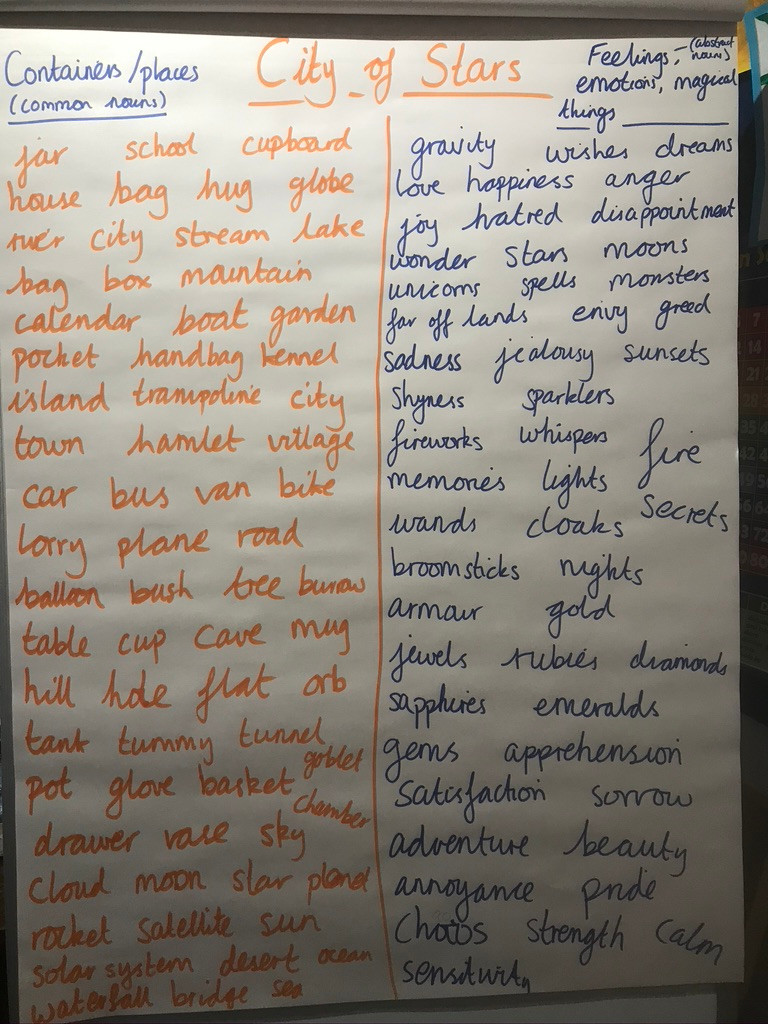 City of Stars
Containers/places
(common nouns)
jar school cupboard
house bag hug globe
river city stream lake
bag box mountain
calendar boat garden
pocket handbag kennel
island trampoline city
town hamlet village
car bus van bike
lorry plane road
balloon bush tree burrow
table cup cave mug
hill hole flat orb
tank tummy tunnel
goblet
pot glove basket
chamber
drawer vase sky
cloud moon star planet
rocket satellite sun
solar system desert ocean
waterfall bridge sea
Feelings, - (abstract nouns)
emotions, magical
things
gravity wishes dreams
love happiness anger
joy hatred disappointment
wonder stars moons
unicorns spells monsters
far off lands envy greed
sadness jealousy sunsets
Shyness sparklers
fireworks whispers fire
memories lights secrets
wands cloaks
broomsticks nights
armour gold
jewels rubies diamonds
sapphires emeralds
gems apprehension
Satisfaction sorrow
adventure beauty
annoyance pride
Chaos strength calm
sensitivity